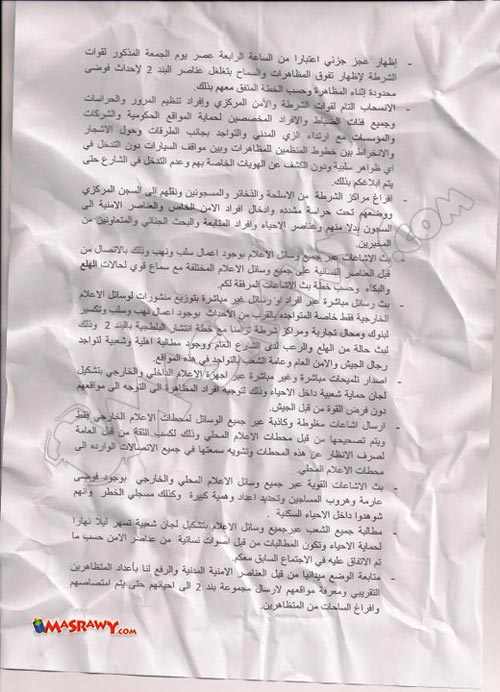 - إظهار عجز جزئي اعتبارا من الساعة الرابعة عصر يوم الجمعة المذكور لقوات
الشرطة لإظهار تفوق المظاهرات والسماح بتغلغل عناصر البند 2 لإحداث فوضى
محدودة إثناء المظاهرة وحسب الخطة المتفق معهم بذلك.
- الانسحاب التام لقوات الشرطة والأمن المركزي وإفراد تنظيم المرور والحراسات
وجميع فئات الضباط والافراد المخصصين لحماية المواقع الحكومية والشركات
والمؤسسات مع ارتداء الزي المدني والتواجد بجانب الطرقات وحول الاشجار
والانخراط بين خطوط المنظمين للمظاهرات وبين مواقف السيارات دون التدخل في
اي ظواهر سلبية ودون الكشف عن الهويات الخاصة بهم وعدم التدخل في الشارع حتى
يتم ابلاغكم بذلك.
- افراغ مراكز الشرطة من الاسلحة والذخائر والمسجونين ونقلهم إلى السجن المركزي
ووضعهم تحت حراسة مشدده وادخال افراد الامن الخاص والعناصر الامنية الى
السجون بدلا منهم وعناصر الاحياء وافراد المتابعة والبحث الجنائي والمتعاونين من
المخبرين.
بث الاشاعات عبر جميع وسائل الاعلام بوجود اعمال سلب ونهب وذلك بالاتصال من
قبل العناصر النسائية على جميع وسائل الاعلام المختلفة مع سماع قوي لحالات الهلع
والبكاء وحسب خطة بث الاشاعات المرفقة لكم.
- بث رسائل مباشرة عبر أفراد او رسائل غير مباشرة بتوزيع منشورات لوسائل الاعلام
الخارجية فقط خاصة المتواجده بالقرب من الاحداث بوجود اعمال نهب وسلب وتكسير
لبنوك ومحال تجارية ومراكز شرطة تزامنا مع خطة انتشار البلطجية بالبند 2 وذلك
لبث حالة من الهلع والرعب لدى الشارع العام ووجود مطالبة اهلية وشعبية لتواجد
رجال الجيش والامن العام وعامة الشعب بالتواجد في هذه المواقع.
- اصدار تلميحات مباشرة وغير مباشرة عبر اجهزة الإعلام الداخلي والخارجي بتشكيل
لجان حماية شعبية داخل الاحياء وذلك لتوجيه افراد المظاهرة الى التوجه الى مواقعهم
دون فرض القوة من قبل الجيش.
- ارسال اشاعات مغلوطة وكاذبة عبر جميع الوسائل لمحطات الاعلام الخارجي فقط
ويتم تصحيحها من قبل محطات الاعلام المحلي وذلك لكسب الثقة من قبل العامة
لصرف الانظار عن هذه المحطات وتشويه سمعتها في جميع الاتصالات الوارده الى
محطات الاعلام المحلي.
- بث الاشاعات القوية عبر جميع وسائل الاعلام المحلي والخارجي بوجود فوضى
عارمة وهروب المساجين وتحديد اعداد وهمية كبيرة وكذلك مسجلي الخطر وأنهم
شوهدوا داخل الاحياء السكنية .
- مطالبة جميع الشعب عبرجميع وسائل الاعلام بتشكيل لجان شعبية تسهر ليلا نهارا
لحماية الاحياء وتكون المطالبات من قبل أصوات نسائية من عناصر الامن حسب ما
تم الاتفاق عليه في الاجتماع السابق معكم
- متابعة الوضع ميدانيا من قبل العناصر الامنية المدنية والرفع لنا بأعداد المتظاهرين
التقريبي ومعرفة مواقعهم لارسال مجموعة بند 2 الى احيائهم حتى يتم امتصاصهم
وافراغ الساحات من المتظاهرين.
MASRAWY.COM